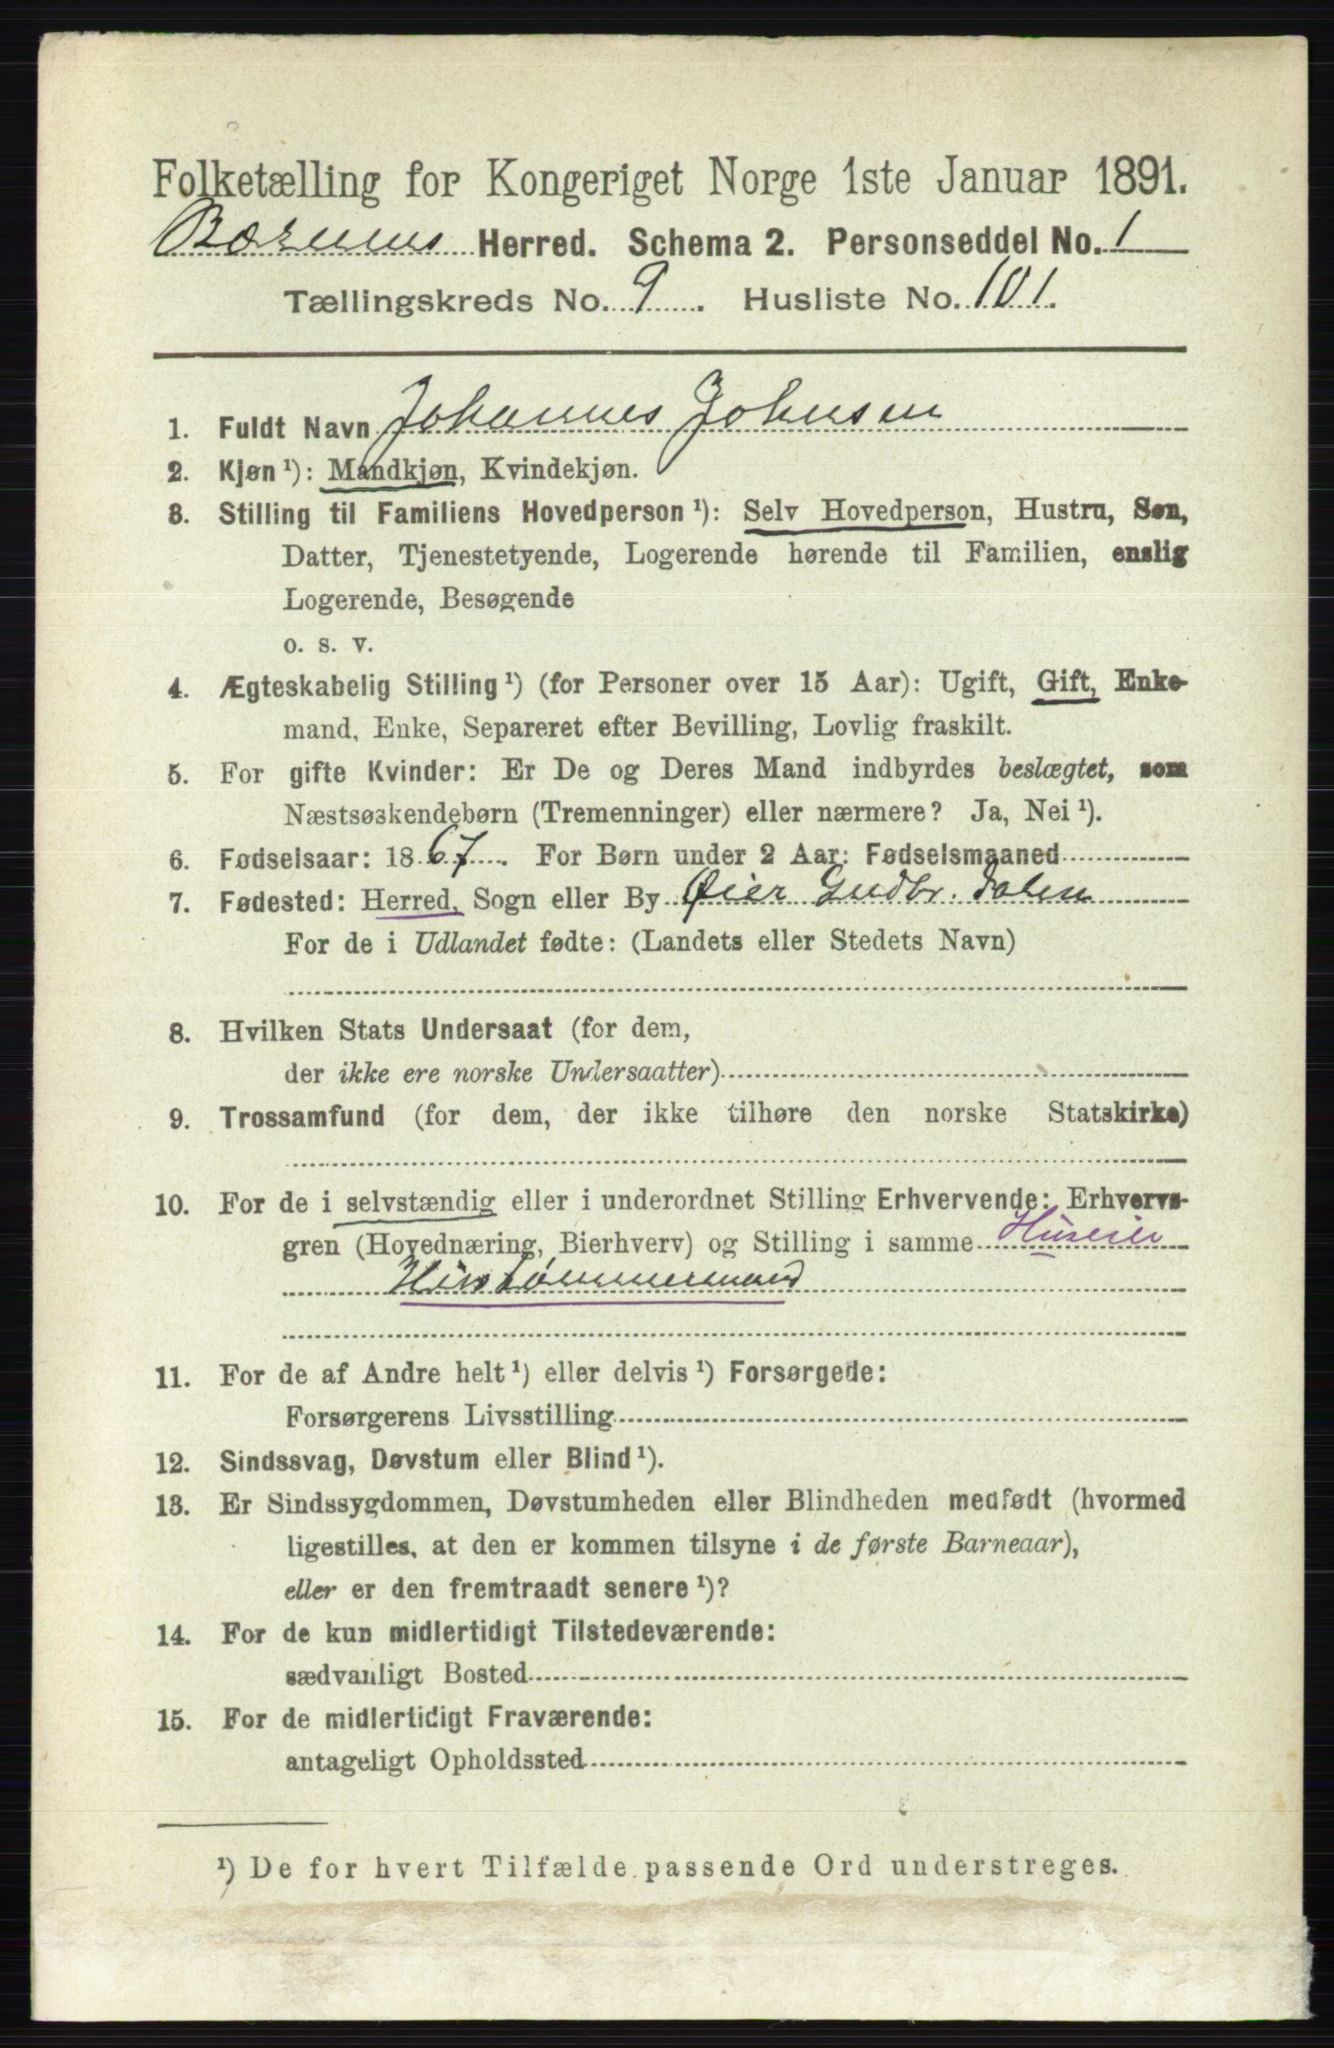 Folketælling for Kongeriget Norge 1ste Januar 1891.
Bærums Herred. Schema 2. Personseddel No. 1
Tællingskreds No. 9. Husliste No. 101.
1. Fuldt Navn Johannes Johnsen
2. Kjøn ¹): Mandkjøn, Kvindekjøn.
3. Stilling til Familiens Hovedperson ¹): Selv Hovedperson, Hustru, Søn,
Datter, Tjenestetyende, Logerende hørende til Familien, enslig
Logerende, Besøgende
o. s. v.
4. Ægteskabelig Stilling ¹) (for Personer over 15 Aar): Ugift, Gift, Enke-
mand, Enke, Separeret efter Bevilling, Lovlig fraskilt.
5. For gifte Kvinder: Er De og Deres Mand indbyrdes beslægtet, som
Næstsøskendebørn (Tremenninger) eller nærmere? Ja, Nei ¹).
6. Fødselsaar: 1867. For Børn under 2 Aar: Fødselsmaaned
7. Fødested: Herred, Sogn eller By Øier Gudbr. dalen
For de i Udlandet fødte: (Landets eller Stedets Navn)
8. Hvilken Stats Undersaat (for dem,
der ikke ere norske Undersaatter)
9. Trossamfund (for dem, der ikke tilhøre den norske Statskirke)
10. For de i selvstændig eller i underordnet Stilling Erhvervende: Erhvervs-
gren (Hovednæring, Bierhverv) og Stilling i samme Huseier
Hustømmermand
11. For de af Andre helt ¹) eller delvis ¹) Forsørgede:
Forsørgerens Livsstilling
12. Sindssvag, Døvstum eller Blind ¹).
13. Er Sindssygdommen, Døvstumheden eller Blindheden medfødt (hvormed
ligestilles, at den er kommen tilsyne i de første Barneaar),
eller er den fremtraadt senere ¹)?
14. For de kun midlertidigt Tilstedeværende:
sædvanligt Bosted
15. For de midlertidigt Fraværende:
antageligt Opholdssted
¹) De for hvert Tilfælde passende Ord understreges.